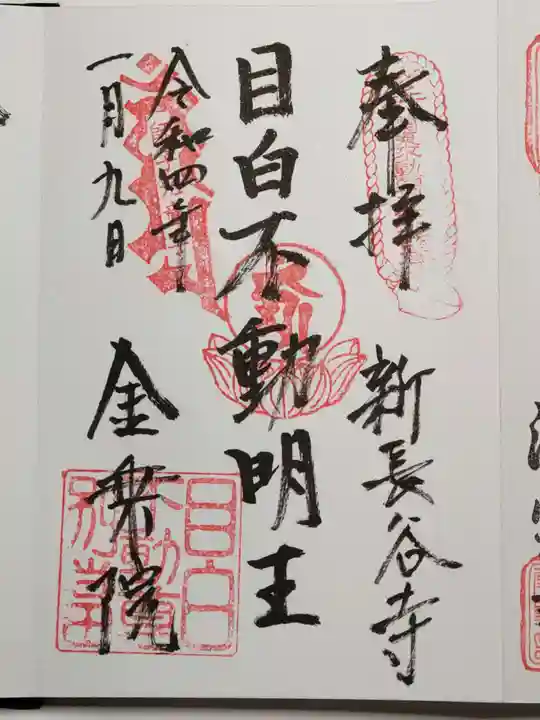 奉拝
新長谷寺
目白不動明王
令和四年
一月九日
金乗院
目白
不動尊
別当